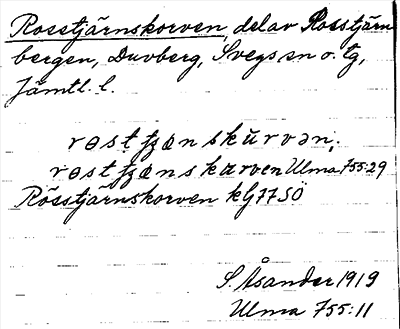 Rosstjärnskorven, del av Rosstjärn
bergen, Duvberg, Svegs sn o. tg,
Jämtl. l.
rɵstʃænskŭrvən.
rɵstʃænskɑrven Ulma 755:29
Rösstjärnskorven kGJJSÖ
S. Åsander 1919
Ulma 755:11